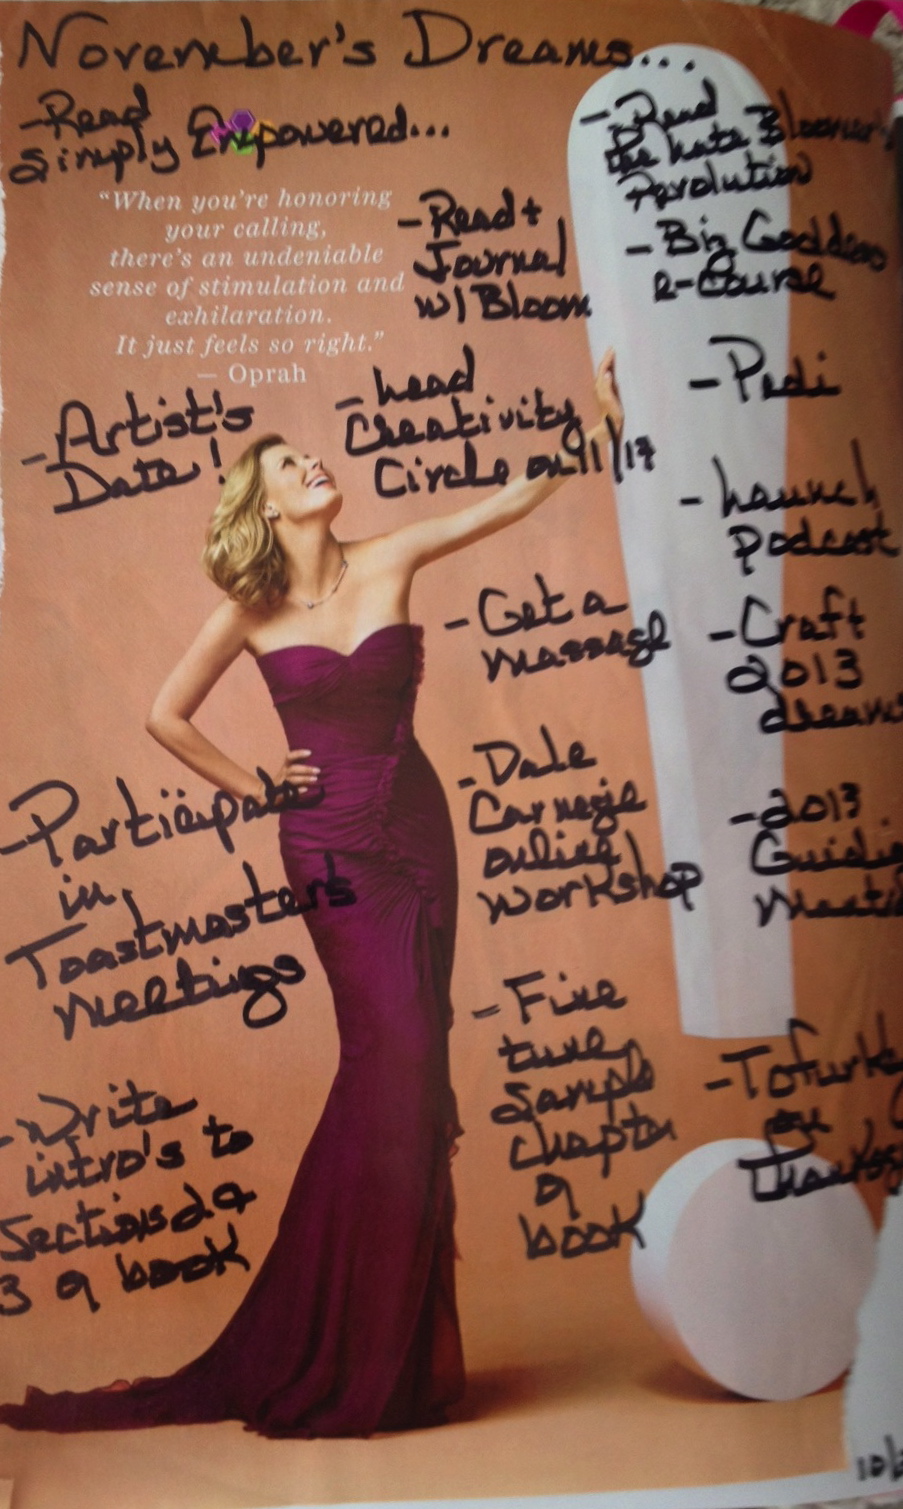 November's Dreams...
-Read
Simply Empowered...
"When you're honoring
your calling,
there's an undeniable
sense of stimulation and
exhilaration.
It just feels so right."
— Oprah
-Read +
Journal
w/ Bloom
-Read
the Late Bloomer's
Revolution
-Biz Goddess
e-Course
-Pedi
-Artist's
Date!
-Lead
Creativity
Circle on 11/17
-Launch
podcast
-Get a
massage
-Craft
2013
dreams
-Participate
in
Toastmasters
meetings
-Dale
Carnegie
online
workshop
-2013
Guidi
Meeti
-Fine
tune
Sample
Chapter
of
book
-Tofurk
on
Thanksg
-Write
intro's to
Sections 2 &
3 of book
10/